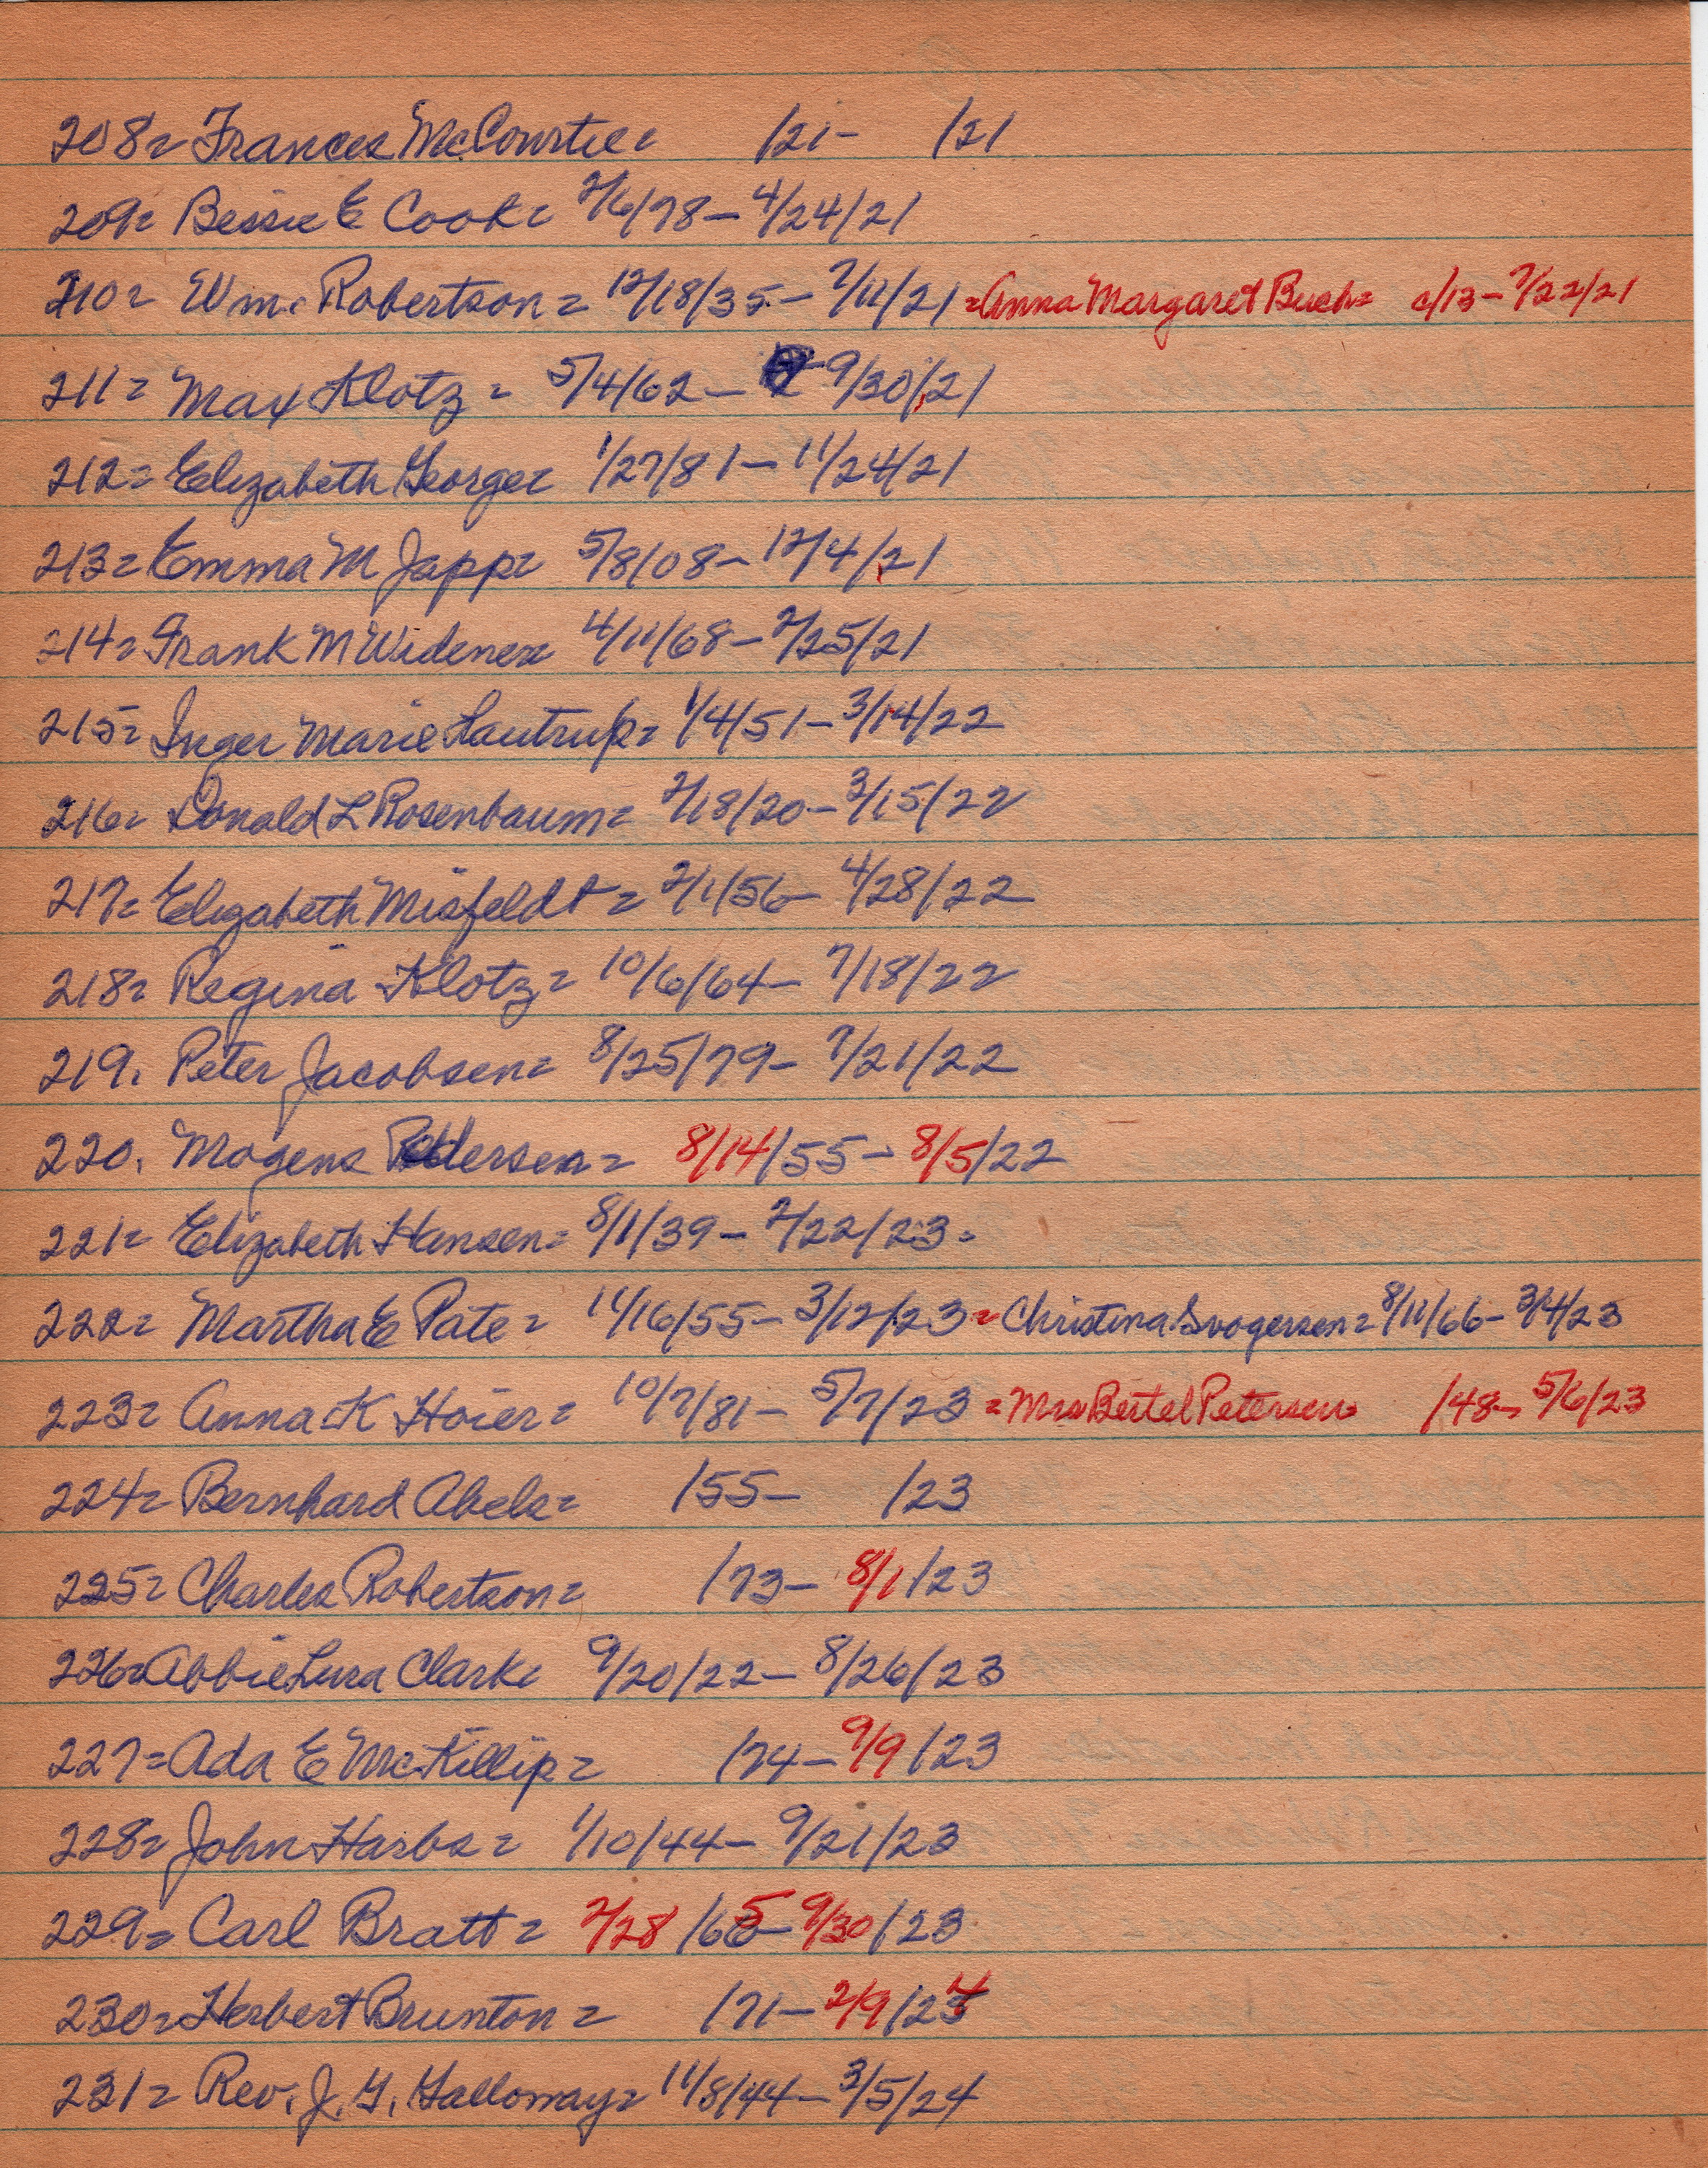 208= Frances McCourtie= /21- /21
209= Bessie E Cook= 2/6/78- 4/24/21
210= Wm. Robertson= 12/18/35- 7/11/21 =Anna Margaret Buch= c/13- 7/22/21
211= Max Klotz= 5/4/62- 9/30/21
212= Elizabeth George= 1/27/81- 11/24/21
213= Emma M Japp= 5/8/08- 12/4/21
214= Frank M Widener= 4/11/68- 2/25/21
215= Inger Marie Lautrup= 1/4/51- 3/14/22
216= Donald L Rosenbaum= 2/18/20- 3/15/22
217= Elizabeth Misfeldt= 2/1/56- 4/28/22
218= Regina Klotz= 10/6/64- 7/18/22
219. Peter Jacobsen= 8/25/79- 7/21/22
220. Mogens Pedersen= 8/14/55- 8/5/22
221= Elizabeth Hansen= 8/1/39- 2/22/23=
222= Martha E Pate= 11/16/55- 3/12/23 =Christina Svogersen= 8/11/66- 3/4/23
223= Anna K Hoier= 10/7/81- 5/7/23 =Mrs Bertel Petersen= /48- 5/6/23
224= Bernhard Abels= /55- /23
225= Charles Robertson= /73- 8/1/23
226= Abbie Lura Clark= 9/20/22- 8/26/23
227= Ada E McKillip= /74- 9/9/23
228= John Harbs= 1/10/44- 9/21/23
229= Carl Bratt= 2/28/65- 9/30/23
230= Herbert Brunton= /71- 2/9/24
231= Rev. J. G. Galloway= 11/8/44- 3/5/24